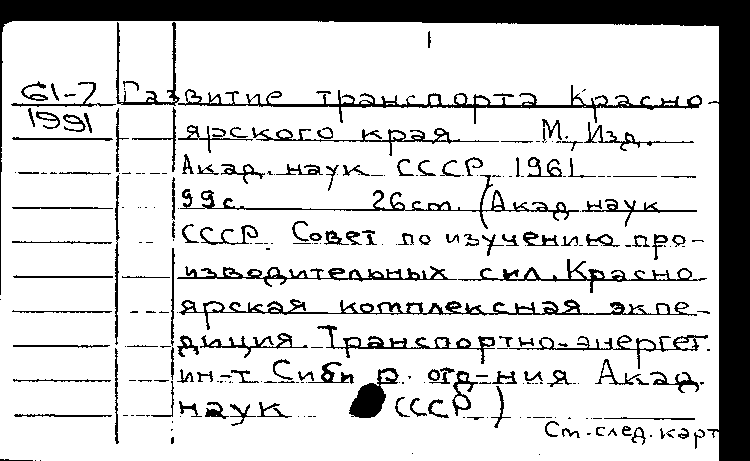 1
61-7 Развитие транспорта Красно-
1991 ярского края М., Изд.
Акад. наук СССР, 1961.
99с. 26см. (Акад наук
СССР. Совет по изучению про-
изводительных сил. Красно-
ярская комплексная экпе-
диция. Транспортно-энергет.
ин-т Сиби р. отд-ния Акад.
наук СССР)
См.след.карт